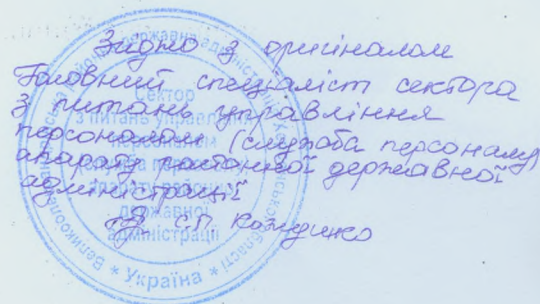 Згідно з оригіналом
Головний спеціаліст сектора
з питань управління
персоналом (служба персоналу)
апарату районної державної
адміністрації
С.П.
Сектор
з питань управління
державної
адміністрації
* Україна *